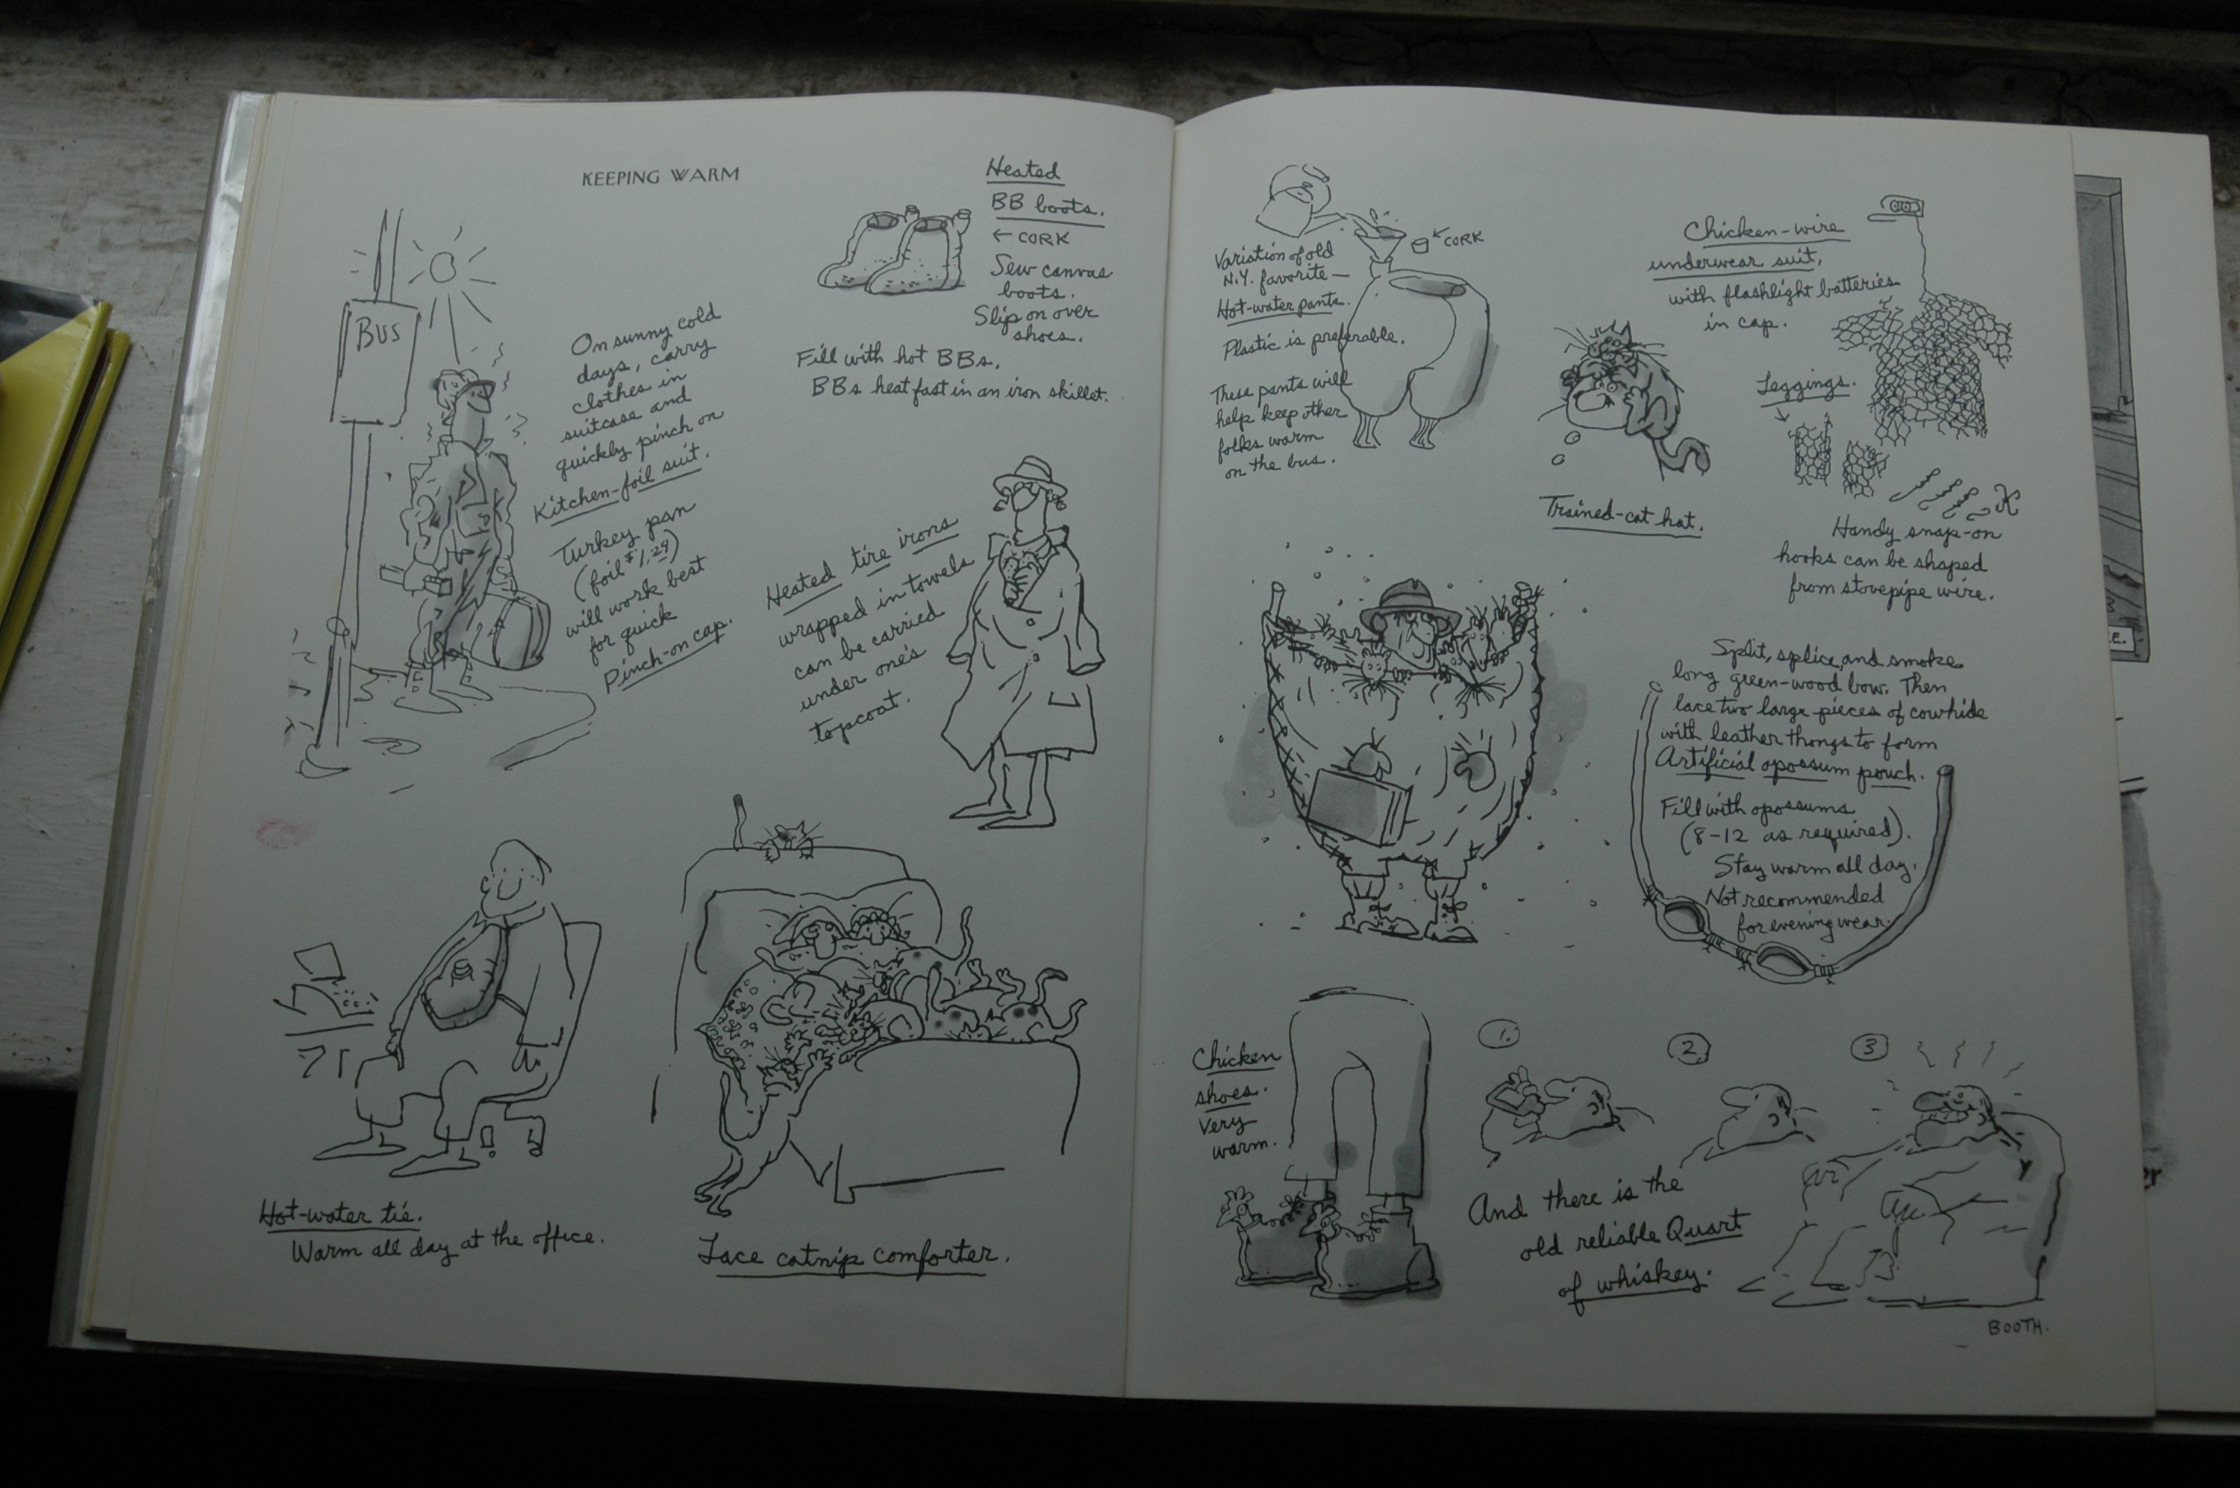 KEEPING WARM
BUS
On sunny cold
days, carry
clothes in
suitcase and
quickly pinch on
Kitchen-foil suit.
Turkey pan
(foil $1.29)
will work best
for quick
Pinch-on cap.
Heated
BB boots.
← CORK
Sew canvas
boots.
Slip on over
shoes.
Fill with hot BBs.
BBs heat fast in an iron skillet.
Heated tire irons
wrapped in towels
can be carried
under one's
topcoat.
Hot-water tie.
Warm all day at the office.
Lace catnip comforter.
← CORK
Variation of old
N.Y. favorite—
Hot-water pants.
Plastic is preferable.
These pants will
help keep other
folks warm
on the bus.
Trained-cat hat.
Chicken-wire
underwear suit,
with flashlight batteries
in cap.
Leggings.
Handy snap-on
hooks can be shaped
from stovepipe wire.
Split, splice, and smoke
long green-wood bow. Then
lace two large pieces of cowhide
with leather thongs to form
Artificial opossum pouch.
Fill with opossums
(8-12 as required).
Stay warm all day.
Not recommended
for evening wear.
Chicken
shoes.
Very
warm.
1.
2
3
And there is the
old reliable Quart
of whiskey.
BOOTH.
E.
er